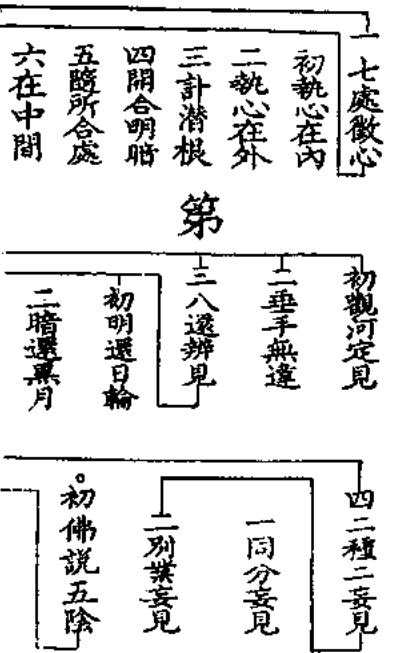 一七處徵心
初執心在內
二執心在外
三計潛根
四開合明暗
五隨所合處
六在中間
第
初觀河定見
二垂手無違
三八還辨見
初明還日輪
二暗還黑月
四二種二妄見
一同分妄見
二別業妄見
初佛說五陰